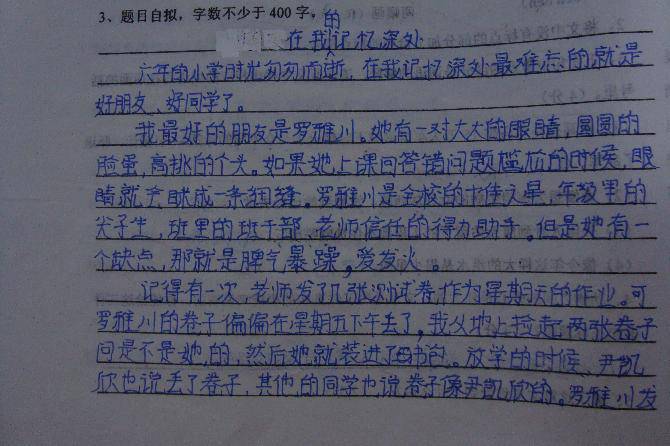 3、题目自拟，字数不少于400字，
在我的记忆深处
六年的小学时光匆匆而逝，在我记忆深处最难忘的就是
好朋友、好同学了。
我最好的朋友是罗雅川。她有一对大大的眼睛，圆圆的
脸蛋，高挑的个头。如果她上课回答错问题尴尬的时候，眼
睛就会眯成一条细缝。罗雅川是全校的十佳之星，年级里的
尖子生，班里的班干部、老师信任的得力助手。但是她有一
个缺点，那就是脾气暴躁，爱发火。
记得有一次，老师发了几张测试卷，作为星期天的作业。可
罗雅川的卷子偏偏在星期五下午丢了。我从地上捡起两张卷子
问是不是她的，然后她就装进了书包。放学的时候，尹凯
欣也说丢了卷子，其他的同学也说卷子像尹凯欣的。罗雅川发